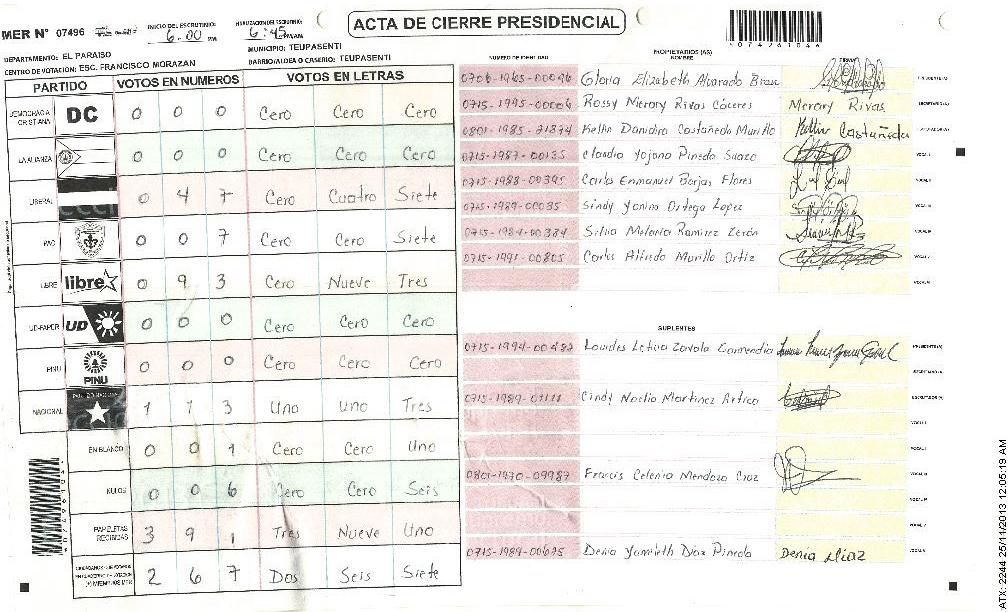 ACTA DE CIERRE PRESIDENCIAL
MER N° 07496
INICIO DEL ESCRUTINIO:
6:00 PM
6:45 PM/AM
DEPARTAMENTO: EL PARAISO
MUNICIPIO: TEUPASENTI
CENTRO DE VOTACION: ESC. FRANCISCO MORAZAN
BARRIO/ALDEA O CASERIO: TEUPASENTI
PARTIDO VOTOS EN NUMEROS VOTOS EN LETRAS
DEMOCRACIA CRISTIANA DC 0 0 0 Cero Cero Cero
LA ALIANZA 0 0 0 Cero Cero Cero
LIBERAL 0 4 7 Cero Cuatro Siete
PAC 0 0 7 Cero Cero Siete
LIBRE libre 0 9 3 Cero Nueve Tres
UD-FAPER UD 0 0 0 Cero Cero Cero
PINU PINU 0 0 0 Cero Cero Cero
NACIONAL 1 1 3 Uno Uno Tres
EN BLANCO 0 0 1 Cero Cero Uno
NULOS 0 0 6 Cero Cero Seis
PAPELETAS RECIBIDAS 3 9 1 Tres Nueve Uno
2 6 7 Dos Seis Siete
NUMERO DE IDENTIDAD
PROPIETARIOS (AS)
NOMBRE
FIRMA
Gloria Elizabeth Alvarado
PRESIDENTE (A)
0715-1995-00006 Rossy Merary Rivas Cáceres Merary Rivas
SECRETARIO (A)
Castañeda Murillo Kellin Castañeda
ESCRUTADOR (A)
0715-1987-00135 Claudia Yojana Pineda Suazo
VOCAL I
0715-1988-00345 Carlos Enmanuel Borjas Flores
VOCAL II
0715-1989-00035 Sindy Yanina Ortega Lopez
VOCAL III
0715-1984-00384 Silvia Melania Ramirez Zerón
VOCAL IV
0715-1991-00805 Carlos Alfredo Murillo Ortiz
VOCAL V
VOCAL VI
SUPLENTES
0715-1994-00482 Lourdes Leticia Zavala
PRESIDENTE (A)
SECRETARIO (A)
0715-1989-01111 Cindy Noelia Martinez Artica
ESCRUTADOR (A)
VOCAL I
VOCAL II
0801-1970-09987 Francis Celenia Mendoza Cruz
VOCAL III
VOCAL IV
VOCAL V
0715-1989-00675 Denia Yamileth Diaz Pineda Denia Diaz
VOCAL VI
ATX: 2244 25/11/2013 12:05:19 AM